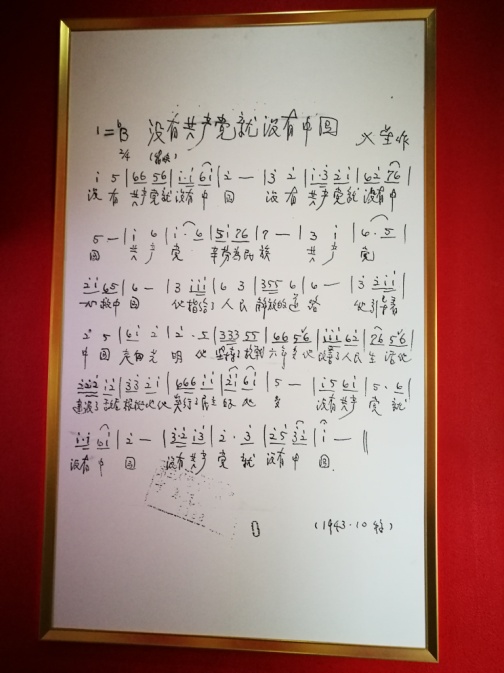 1=♭B 没有共产党就没有中国 火星作
2/4
i 5 | 66 56 | i·i 6i | 2 — | 3 2 | i·3 2i | 62 76 |
没有 共产党就 没有中 国 没有 共产党就 没有中
5 — | i 6 | i· 6 | 5i 76 | ? — | 3 i | 6·5 |
国 共产 党 辛劳为民族 共产 党
2i 65 | 6 — | 3 iii | 6 3 | 355 6 | 6 — | 3 2ii |
一心救中国 他指给了人民 解放的道路 他引导着
2 5 | 6i 2 | 2·5 | 333 55 | 66 56 | iii 62 | 76 56 |
中国 走向光 明 他 坚持了抗战六年多他 改善了人民生活他
建设了 敌后根据地他 实行了民主的 好 处 没有共产 党 就
i·i 6i | 2 — | 3·2 i3 | 2·3 | 25 32 | i — ‖
没有中 国 没有共产 党 就 没有中 国
(1943·10